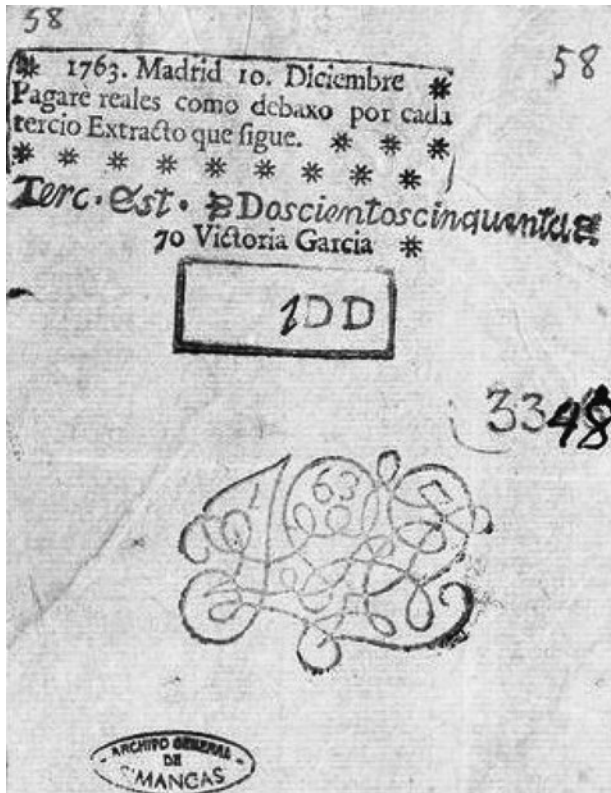 58
58
1763. Madrid 10. Diciembre *
Pagarè reales como debaxo por cada
tercio Extracto que sigue. * * *
* * * * * * * * *
Terc. est. Doscientoscinquenta
70 Victoria Garcia *
1DD
3348
1 63
ARCHIVO GENERAL
DE
SIMANCAS